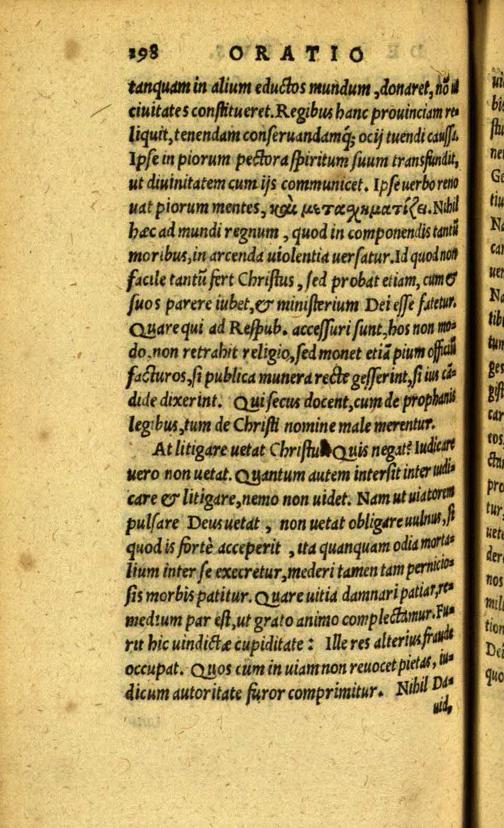 198 ORATIO
tanquam in alium eductos mundum, donaret, nō ul
ciuitates constitueret. Regibus hanc prouinciam re-
liquit, tenendam conseruandamq́; ocij tuendi caussa.
Ipse in piorum pectora spiritum suum transfundit,
ut diuinitatem cum ijs communicet. Ipse uerbo reno
uat piorum mentes, καὶ μεταχηματίζει. Nihil
hæc ad mundi regnum, quod in componendis tantū
moribus, in arcenda uiolentia uersatur. Id quod non
facile tantū fert Christus, sed probat etiam, cum &
suos parere iubet, & ministerium Dei esse fatetur.
Quare qui ad Respub. accessuri sunt, hos non mo-
do, non retrahit religio, sed monet etiā pium officiū
facturos, si publica munera recte gesserint, si ius cā-
dide dixerint. Qui secus docent, cum de prophanis
legibus, tum de Christi nomine male merentur.
At litigare uetat Christus Quis negat? Iudicare
uero non uetat. Quantum autem intersit inter iudi-
care & litigare, nemo non uidet. Nam ut uiatorem
pulsare Deus uetat, non uetat obligare uulnus, si
quod is fortè acceperit, ita quanquam odia morta-
lium inter se execretur, mederi tamen tam pernicio-
sis morbis patitur. Quare uitia damnari patiar, re-
medium par est, ut grato animo complectamur. Fu-
rit hic uindictæ cupiditate: Ille res alterius fraude
occupat. Quos cum in uiam non reuocet pietas, iu-
dicum autoritate furor comprimitur. Nihil Da-
uid,